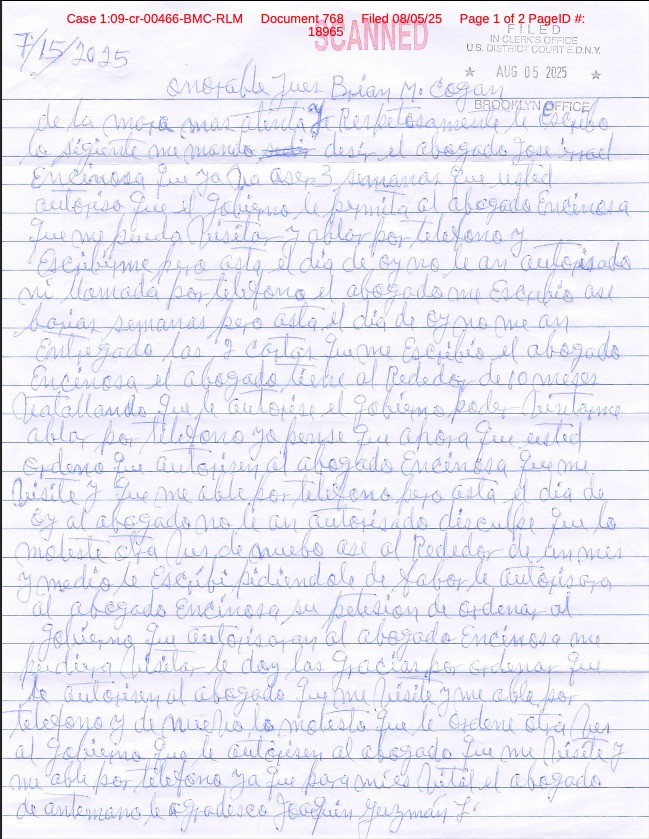 Case 1:09-cr-00466-BMC-RLM Document 768 Filed 08/05/25 Page 1 of 2 PageID #:
18965
SCANNED
FILED
IN CLERK'S OFFICE
U.S. DISTRICT COURT E.D.N.Y.
★ AUG 05 2025 ★
BROOKLYN OFFICE
7/15/2025
onorable Jues Brian M. Cogan
de la mara mas atenta y Respetosamente le Escribo
lo sigiente me mando desir el abogado Jose israel
Encinosa que ya ha aser 3 semanas que usted
autoriso que el gobierno le permita al abogado Encinosa
que me pueda Visitar y ablar por telefono y
Escribirme pero asta el dia de oy no le an autorisado
ni llamada por telefono el abogado me Escribio ase
barias semanas pero asta el dia de oy no me an
Entregado las 2 cartas que me Escribio el abogado
Encinosa el abogado tiene al Rededor de 10 meses
Vatallando que le autorise el gobierno poder Visitarme
ablar por telefono yo pense que ahora que usted
ordeno que autorisen al abogado Encinosa que me
Visite y que me able por telefono pero asta el dia de
oy al abogado no le an autorisado disculpe que lo
moleste otra Ves de nuebo ase al Rededor de un mes
y medio le Escribi pidiendole de fabor le autorisara
al abogado Encinosa su petision de ordenar al
gobierno que autorisaran al abogado Encinosa me
pudiera Visitar le doy las gracias por ordenar que
le autorisen al abogado que me Visite y me able por
telefono y de nuebo lo molesto que le ordene otra Ves
al gobierno que le autorisen al abogado que me Visite y
me able por telefono ya que para mi es Vital el abogado
de antemano le agradesco Joaquin Guzmán L.